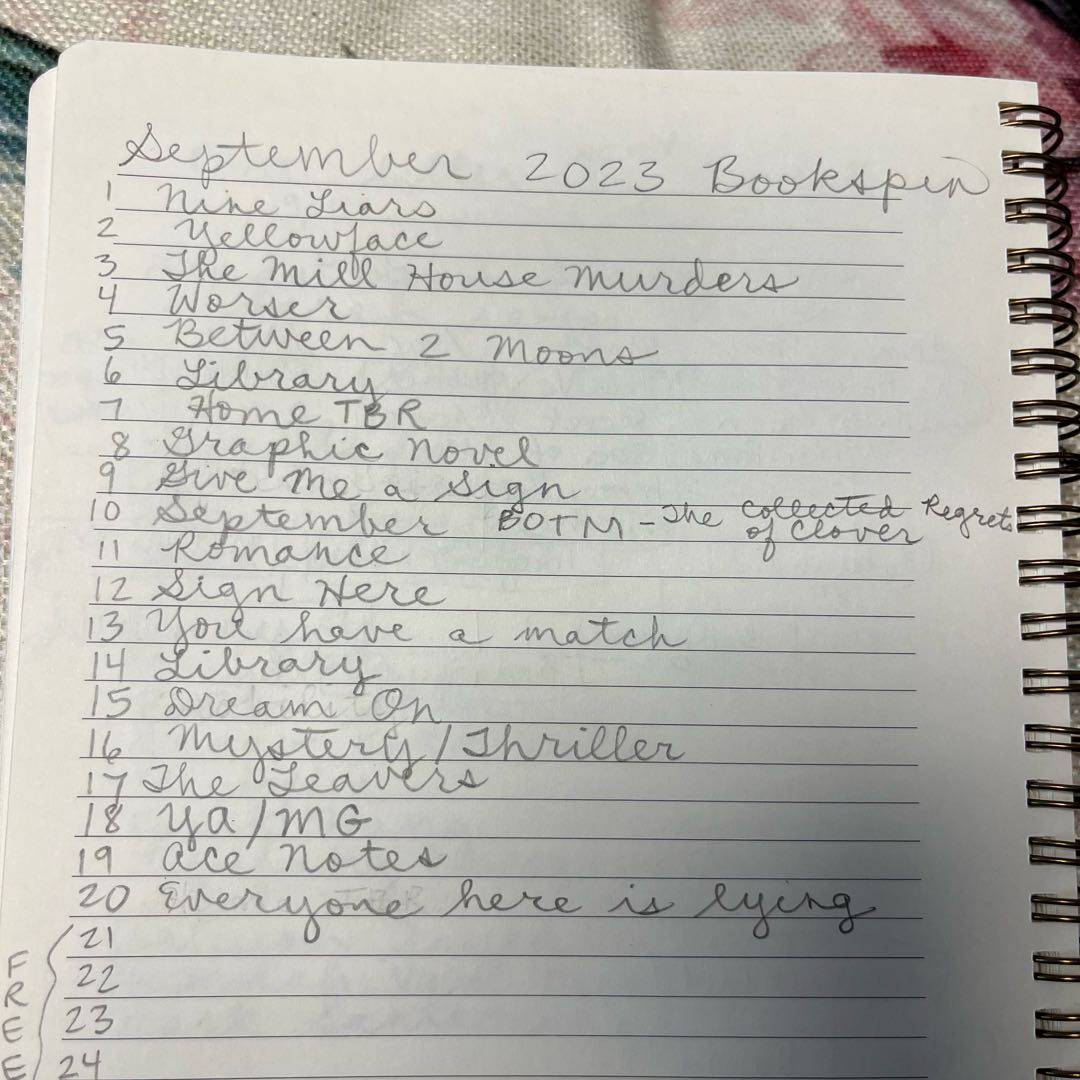 September 2023 Bookspin
1 Nine Liars
2 Yellowface
3 The Mill House Murders
4 Worser
5 Between 2 Moons
6 Library
7 Home TBR
8 Graphic Novel
9 Give Me a Sign
10 September BOTM - The collected Regrets
of Clover
11 Romance
12 Sign Here
13 You have a match
14 Library
15 Dream On
16 Mystery/Thriller
17 The Leavers
18 Ya/MG
19 ace Notes
20 Everyone here is lying
21
22
23
24
FREE